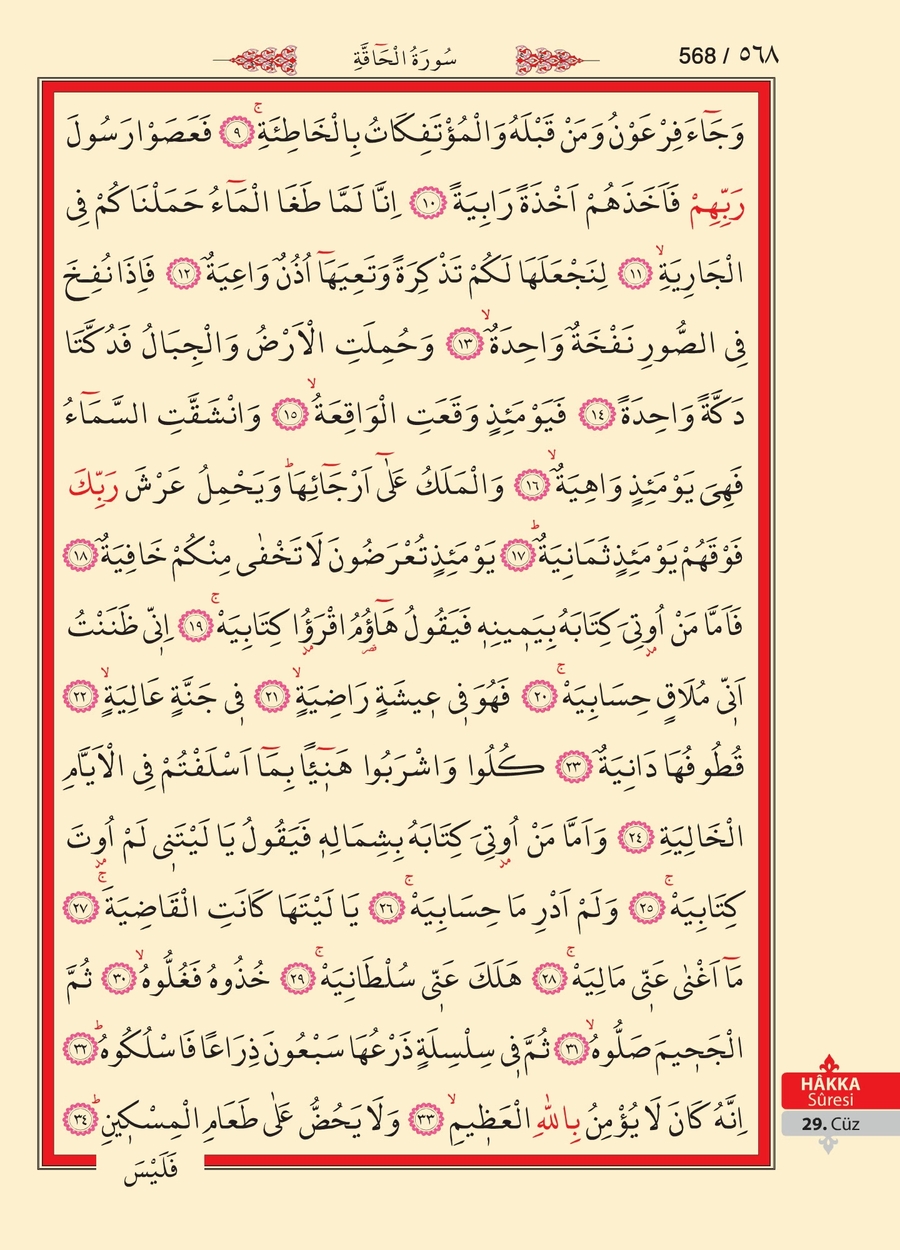 سُورَةُ الْحَاقَّةِ
568 / ٥٦٨
وَجَٓاءَ فِرْعَوْنُ وَمَنْ قَبْلَهُ وَالْمُؤْتَفِكَاتُ بِالْخَاطِئَةِۚ ﴿٩﴾ فَعَصَوْا رَسُولَ
رَبِّهِمْ فَاَخَذَهُمْ اَخْذَةً رَابِيَةً ﴿١٠﴾ اِنَّا لَمَّا طَغَا الْمَٓاءُ حَمَلْنَاكُمْ فِى
الْجَارِيَةِۙ ﴿١١﴾ لِنَجْعَلَهَا لَكُمْ تَذْكِرَةً وَتَعِيَهَٓا اُذُنٌ وَاعِيَةٌ ﴿١٢﴾ فَاِذَا نُفِخَ
فِى الصُّورِ نَفْخَةٌ وَاحِدَةٌۙ ﴿١٣﴾ وَحُمِلَتِ الْاَرْضُ وَالْجِبَالُ فَدُكَّتَا
دَكَّةً وَاحِدَةً ﴿١٤﴾ فَيَوْمَئِذٍ وَقَعَتِ الْوَاقِعَةُۙ ﴿١٥﴾ وَانْشَقَّتِ السَّمَٓاءُ
فَهِىَ يَوْمَئِذٍ وَاهِيَةٌۙ ﴿١٦﴾ وَالْمَلَكُ عَلٰٓى اَرْجَٓائِهَاۜ وَيَحْمِلُ عَرْشَ رَبِّكَ
فَوْقَهُمْ يَوْمَئِذٍ ثَمَانِيَةٌۜ ﴿١٧﴾ يَوْمَئِذٍ تُعْرَضُونَ لَا تَخْفٰى مِنْكُمْ خَافِيَةٌ ﴿١٨﴾
فَاَمَّا مَنْ اُو۫تِىَ كِتَابَهُ بِيَمٖينِهٖ فَيَقُولُ هَٓاؤُ۬مُ اقْرَؤُ۫ا كِتَابِيَهْۚ ﴿١٩﴾ اِنّٖى ظَنَنْتُ
اَنّٖى مُلَاقٍ حِسَابِيَهْۚ ﴿٢٠﴾ فَهُوَ فٖى عٖيشَةٍ رَاضِيَةٍۙ ﴿٢١﴾ فٖى جَنَّةٍ عَالِيَةٍۙ ﴿٢٢﴾
قُطُوفُهَا دَانِيَةٌ ﴿٢٣﴾ كُلُوا وَاشْرَبُوا هَنٖٓيـًٔا بِمَٓا اَسْلَفْتُمْ فِى الْاَيَّامِ
الْخَالِيَةِ ﴿٢٤﴾ وَاَمَّا مَنْ اُو۫تِىَ كِتَابَهُ بِشِمَالِهٖ فَيَقُولُ يَا لَيْتَنٖى لَمْ اُو۫تَ
كِتَابِيَهْۚ ﴿٢٥﴾ وَلَمْ اَدْرِ مَا حِسَابِيَهْۚ ﴿٢٦﴾ يَا لَيْتَهَا كَانَتِ الْقَاضِيَةَۚ ﴿٢٧﴾
مَٓا اَغْنٰى عَنّٖى مَالِيَهْۚ ﴿٢٨﴾ هَلَكَ عَنّٖى سُلْطَانِيَهْۚ ﴿٢٩﴾ خُذُوهُ فَغُلُّوهُۙ ﴿٣٠﴾ ثُمَّ
الْجَحٖيمَ صَلُّوهُۙ ﴿٣١﴾ ثُمَّ فٖى سِلْسِلَةٍ ذَرْعُهَا سَبْعُونَ ذِرَاعًا فَاسْلُكُوهُۜ ﴿٣٢﴾
اِنَّهُ كَانَ لَا يُؤْمِنُ بِاللّٰهِ الْعَظٖيمِۙ ﴿٣٣﴾ وَلَا يَحُضُّ عَلٰى طَعَامِ الْمِسْكٖينِۜ ﴿٣٤﴾
فَلَيْسَ
HÂKKA
Sûresi
29. Cüz